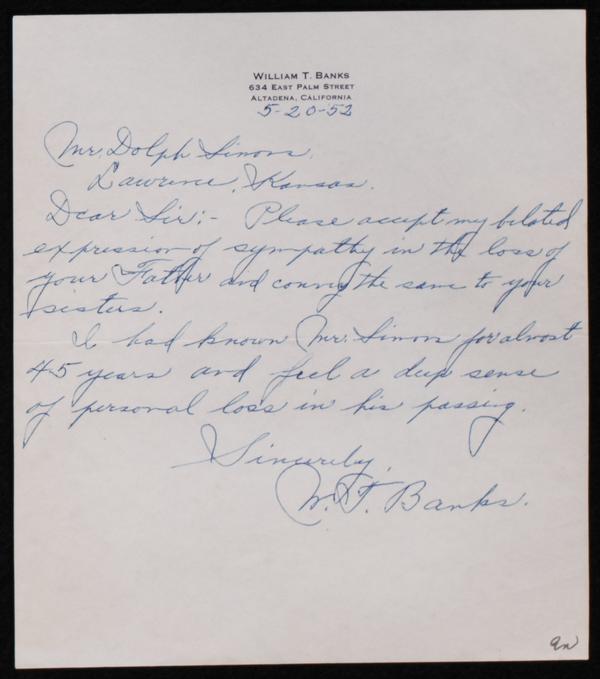 WILLIAM T. BANKS
634 EAST PALM STREET
ALTADENA, CALIFORNIA
5-20-52
Mr. Dolph Simons,
Lawrence, Kansas.
Dear Sir:- Please accept my belated
expression of sympathy in the loss of
your Father and convey the same to your
sisters.
I had known Mr. Simons for almost
45 years and feel a deep sense
of personal loss in his passing.
Sincerely,
W. T. Banks.